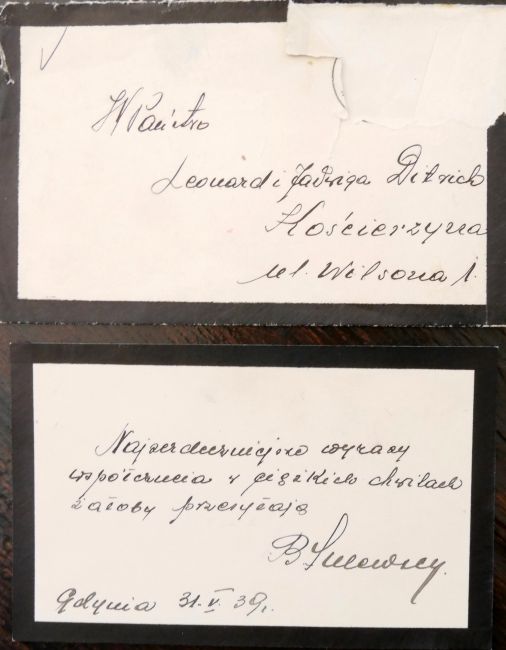 WPaństwo
Leonard i Jadwiga Ditrich
Kościerzyna
ul. Wilsona 1.
Najserdeczniejsze wyrazy
współczucia w ciężkich chwilach
żałoby przesyłają
Gdynia 31.V.39r.